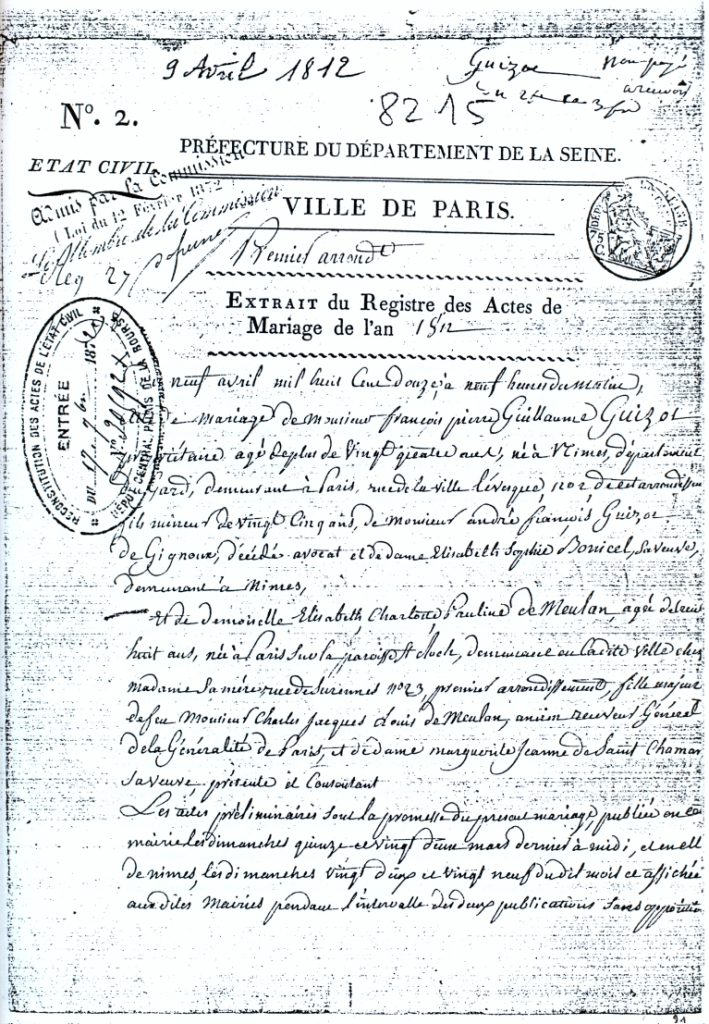 9 Avril 1812
Guizot
8215
N°. 2.
PRÉFECTURE DU DÉPARTEMENT DE LA SEINE.
ETAT CIVIL
Admis par la Commission
(Loi du 12 Février 1872
Le Membre de la Commission
VILLE DE PARIS.
Premier arrondt
EXTRAIT du Registre des Actes de
Mariage de l'an 1812
RECONSTITUTION DES ACTES DE L'ÉTAT CIVIL
ENTRÉE
DU
PALAIS DE LA BOURSE
neuf avril mil huit Cent Douze, à neuf heures du matin,
de mariage de Monsieur françois pierre Guillaume Guizot
propriétaire agé de plus de Vingt quatre ans, né à Nimes, département
Gard, demeurant à Paris, rue de la ville l'évesque, de cet arrondissem
fils mineur de vingt Cinq ans, de Monsieur andré françois Guizot
de Gignoux, décédé avocat et de dame Elisabeth Sophie Bonicel, sa veuve,
demeurant à Nimes,
Et de demoiselle Elisabeth Charlotte Pauline de Meulan, agée de trente
huit ans, née à Paris sur la paroisse St Roch, demeurant en la dite ville chez
madame sa mère rue de Surennes n° 23, premier arrondissement, fille majeure
de feu Monsieur Charles Jacques Louis de Meulan, ancien receveur Général
de la Généralité de Paris, et de dame marguerite Jeanne de Saint Chaman
sa veuve, présente et Consentant
Les actes préliminaires sont la promesse du présent mariage, publiée en ce
mairie les dimanches quinze et vingt deux mars dernier à midi, et en elle
de nimes, les dimanches vingt deux et vingt neuf du dit mois et affichée
aux dites Mairies pendant l'intervalle des deux publications sans opposition